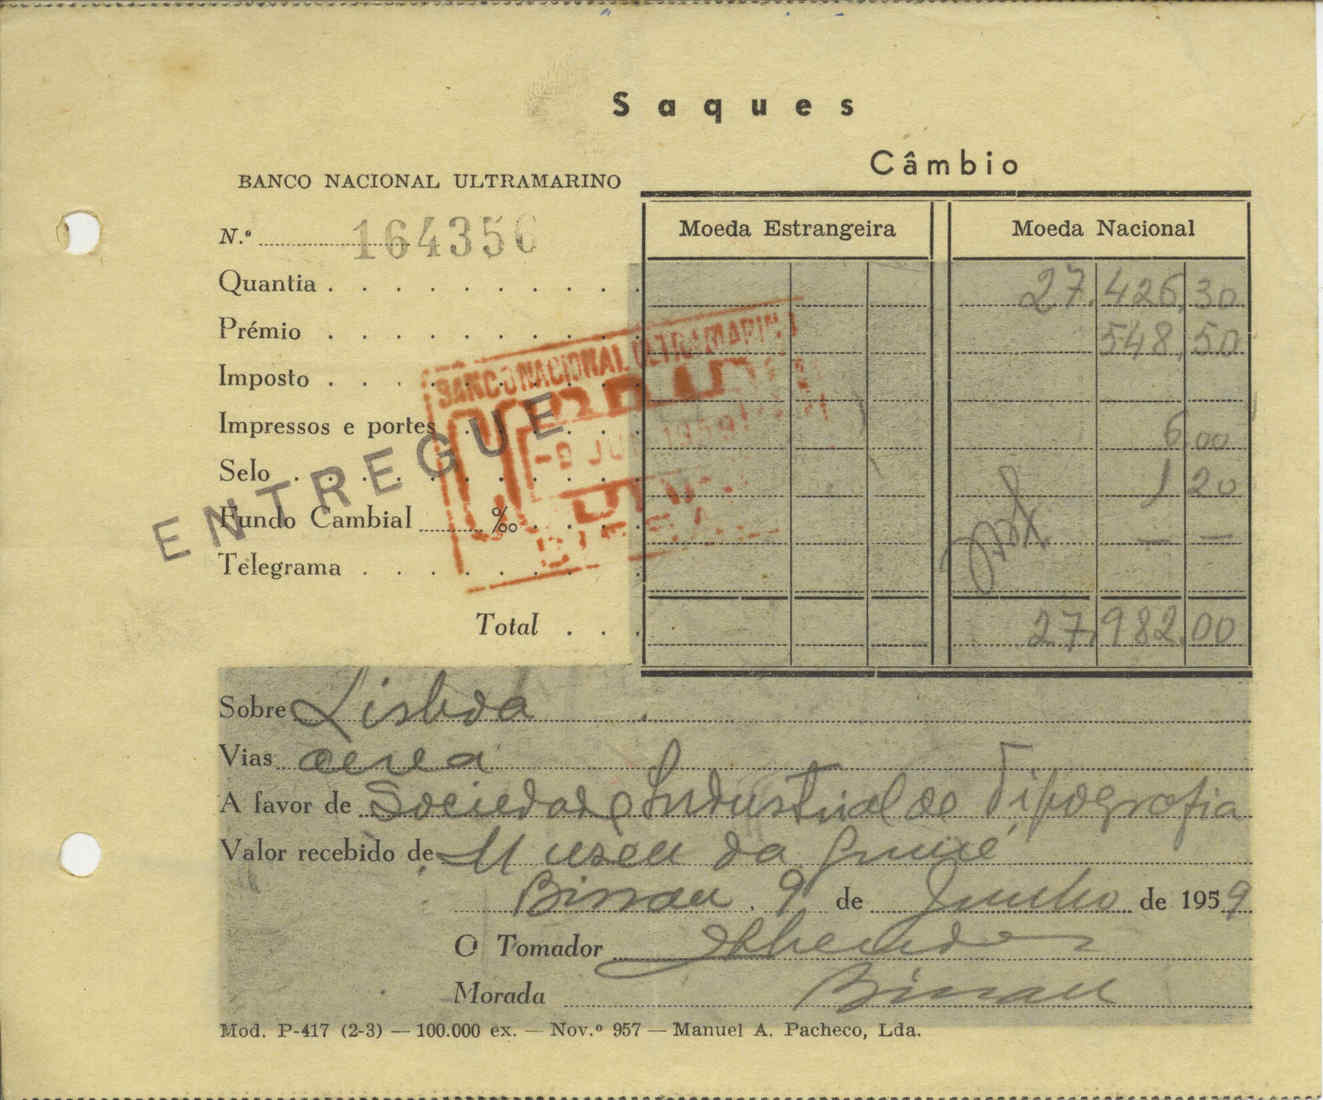 Saques
Câmbio
BANCO NACIONAL ULTRAMARINO
N.º 164356
Moeda Estrangeira Moeda Nacional
Quantia . . . . . . . . . . 27.426,30
Prémio . . . . . . . . . . 548,50
Imposto . . . . . . . . . .
Impressos e portes . . . . . . 6,00
Selo . . . . . . . . . . . 1 20
Fundo Cambial ‰ . . . . — —
Telegrama . . . . . . . . .
Total . . . 27.982,00
BANCO NACIONAL ULTRAMARINO
-9 JUN 1959
ENTREGUE
Sobre Lisboa
Vias aerea
A favor de Sociedade Industrial de Tipografia
Valor recebido de Museu da Guiné
Bissau, 9 de Junho de 1959
O Tomador
Morada Bissau
Mod. P-417 (2-3) — 100.000 ex. — Nov.º 957 — Manuel A. Pacheco, Lda.